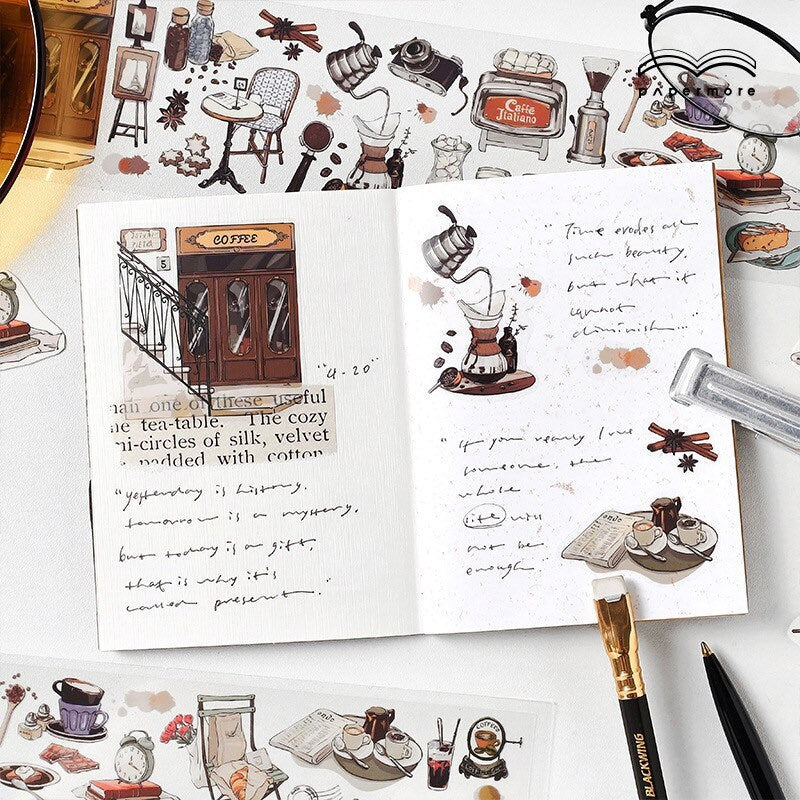 papermore
Caffè
Italiano
COFFEE
5
"4-20"
man one of these useful
he tea-table. The cozy
mi-circles of silk, velvet
padded with cotton
"yesterday is history.
tomorrow is a mystery.
but today is a gift.
that is why it's
called present."
"Time erodes all
such beauty.
but what it
cannot
diminish..."
"if you really love
someone, the
whole
life will
not be
enough.
BLACKWING
COFFEE